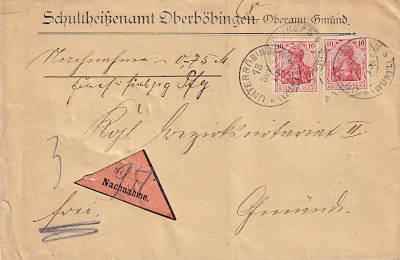 Schultheißenamt Oberböbingen Oberamt Gmünd.
Nachnahme – 0,75 M
fünfundsiebzig Pfg
10 10
10 10
UNTERBÖBINGEN
Kgl Bezirksnotariat II.
3
Nachnahme.
frei.
Gmünd